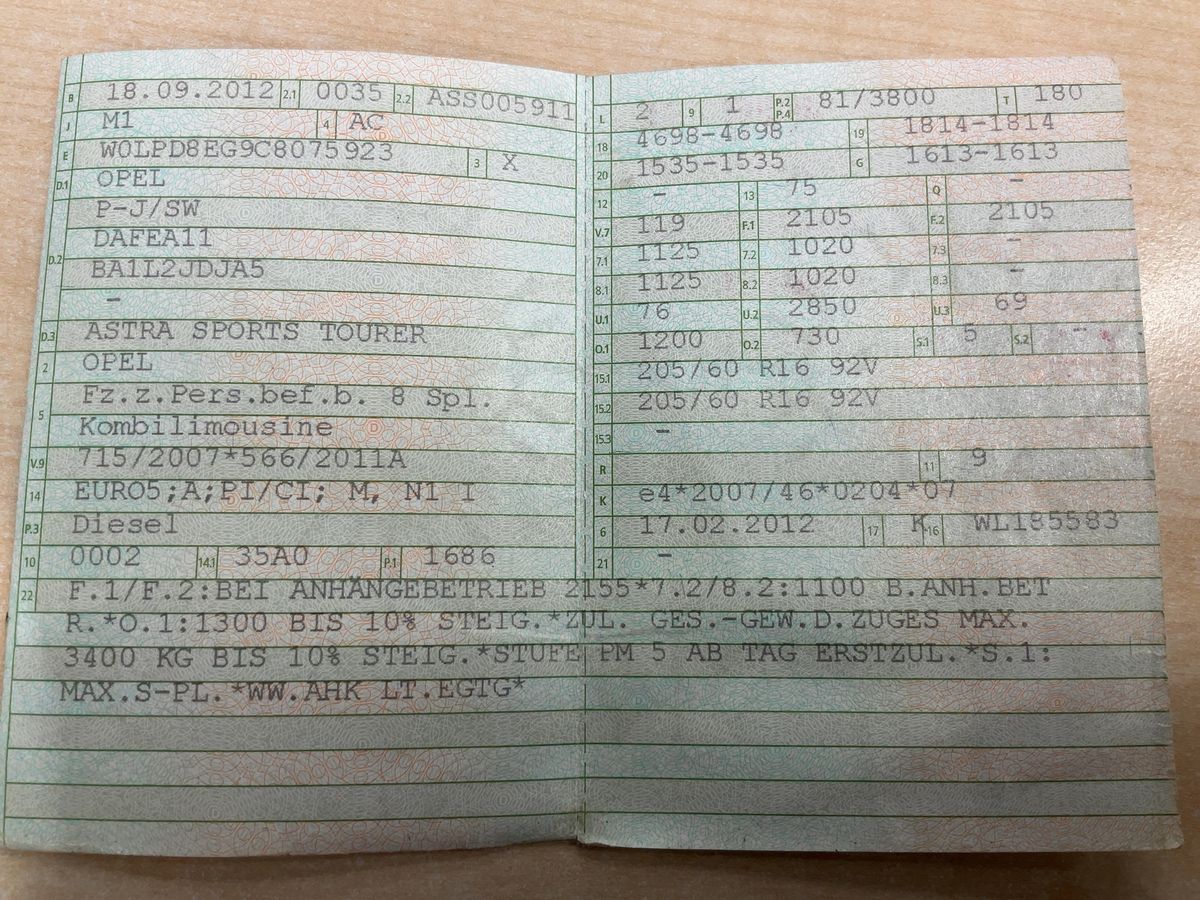 B 18.09.2012 2.1 0035 2.2 ASS005911
J M1 4 AC
E W0LPD8EG9C8075923 3 X
D.1 OPEL
D.2 P-J/SW
DAFEA11
BA1L2JDJA5
-
D.3 ASTRA SPORTS TOURER
2 OPEL
5 Fz.z.Pers.bef.b. 8 Spl.
Kombilimousine
V.9 715/2007*566/2011A
14 EURO5;A;PI/CI; M, N1 I
P.3 Diesel
10 0002 14.1 35A0 P.1 1686
L 2 9 1 P.2 P.4 81/3800 T 180
18 4698-4698 19 1814-1814
20 1535-1535 G 1613-1613
12 - 13 75 Q -
V.7 119 F.1 2105 F.2 2105
7.1 1125 7.2 1020 7.3 -
8.1 1125 8.2 1020 8.3 -
U.1 76 U.2 2850 U.3 69
O.1 1200 O.2 730 S.1 5 S.2 -
15.1 205/60 R16 92V
15.2 205/60 R16 92V
15.3 -
R 11 9
K e4*2007/46*0204*07
6 17.02.2012 17 K 16 WL185583
21 -
22 F.1/F.2:BEI ANHÄNGEBETRIEB 2155*7.2/8.2:1100 B.ANH.BET
R.*O.1:1300 BIS 10% STEIG.*ZUL. GES.-GEW.D.ZUGES MAX.
3400 KG BIS 10% STEIG.*STUFE PM 5 AB TAG ERSTZUL.*S.1:
MAX.S-PL.*WW.AHK LT.EGTG*